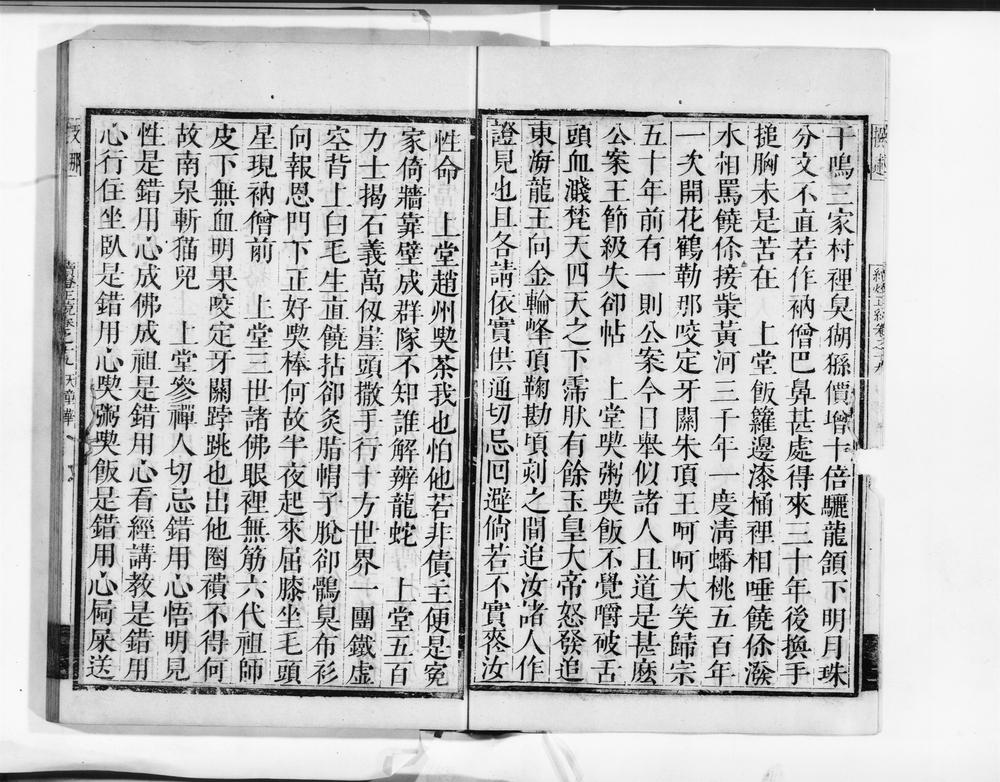 干鳴三家村裡臭猢猻價增十倍驪龍頷下明月珠
分文不直若作衲僧巴鼻甚處得來三十年後換手
搥胸未是苦在　上堂飯籮邊漆桶裡相唾饒你潑
水相罵饒你接觜黃河三千年一度淸蟠桃五百年
一次開花鶴勒那咬定牙關朱頂王呵呵大笑歸宗
五十年前有一則公案今日舉似諸人且道是甚麽
公案王節級失卻帖　上堂喫粥喫飯不覺嚼破舌
頭血濺梵天四天之下霈肰有餘玉皇大帝怒發追
東海龍王向金輪峰頂鞠勘頃刻之間追汝諸人作
證見也且各請依實供通切忌回避倘若不實䘮汝
性命　上堂趙州喫茶我也怕他若非債主便是寃
家倚牆靠壁成群隊不知誰解辨龍蛇　上堂五百
力士揭石義萬仭崖頭撒手行十方世界一團鐵虛
空背上白毛生直饒拈卻灸脂帽子脫卻鶻臭布衫
向報恩門下正好喫棒何故半夜起來屈膝坐毛頭
星現衲僧前　上堂三世諸佛眼裡無筋六代祖師
皮下無血明果咬定牙關踍跳也出他圈䙡不得何
故南泉斬猫兒　上堂參禪人切忌錯用心悟明見
性是錯用心成佛成祖是錯用心看經講敎是錯用
心行住坐臥是錯用心喫粥喫飯是錯用心屙屎送